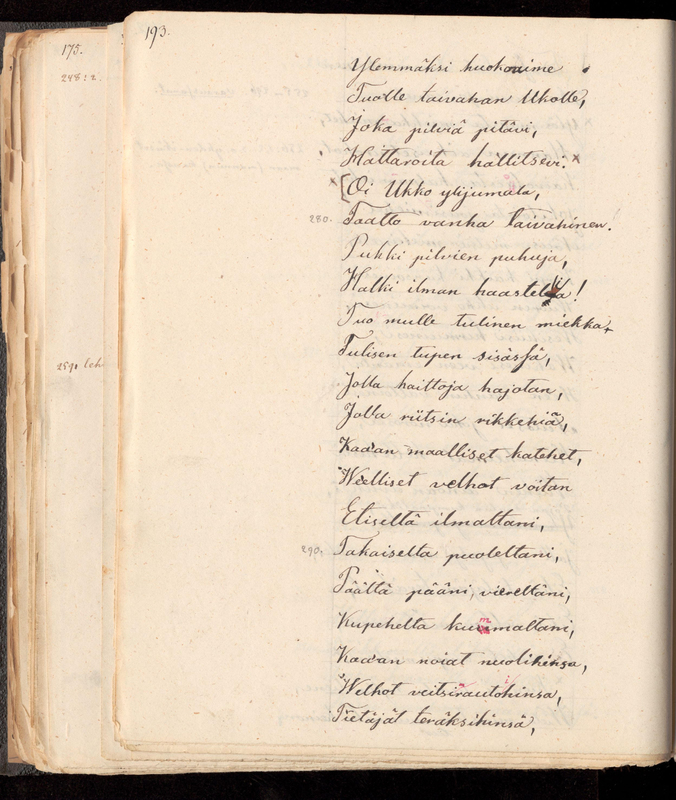 193.
175.
248:2
Ylemmäksi huokoaime
Tuolle taivahan Ukolle,
Joka pilviä pitävi,
Hattaroita hallitsevi. x
x [Oi Ukko ylijumala,
280. Taatto vanha taivahinen!
Pukki pilvien puhuja,
Halki ilman haastelia!
Tuo mulle tulinen miekka
Tulisen tupen sisässä,
Jolla haittoja hajotan,
Jolla riitsin rikkehiä,
Kaaan maalliset katehet,
Weelliset velhot voitan
Etiseltä ilmaltani,
290. Takaiselta puoleltani,
Päältä pääni, viereltäni,
Kupehelta kummaltani,
Kaaan noiat nuolihinsa,
Welhot veitsirautohinsa,
Tietäjät teräksihinsä,